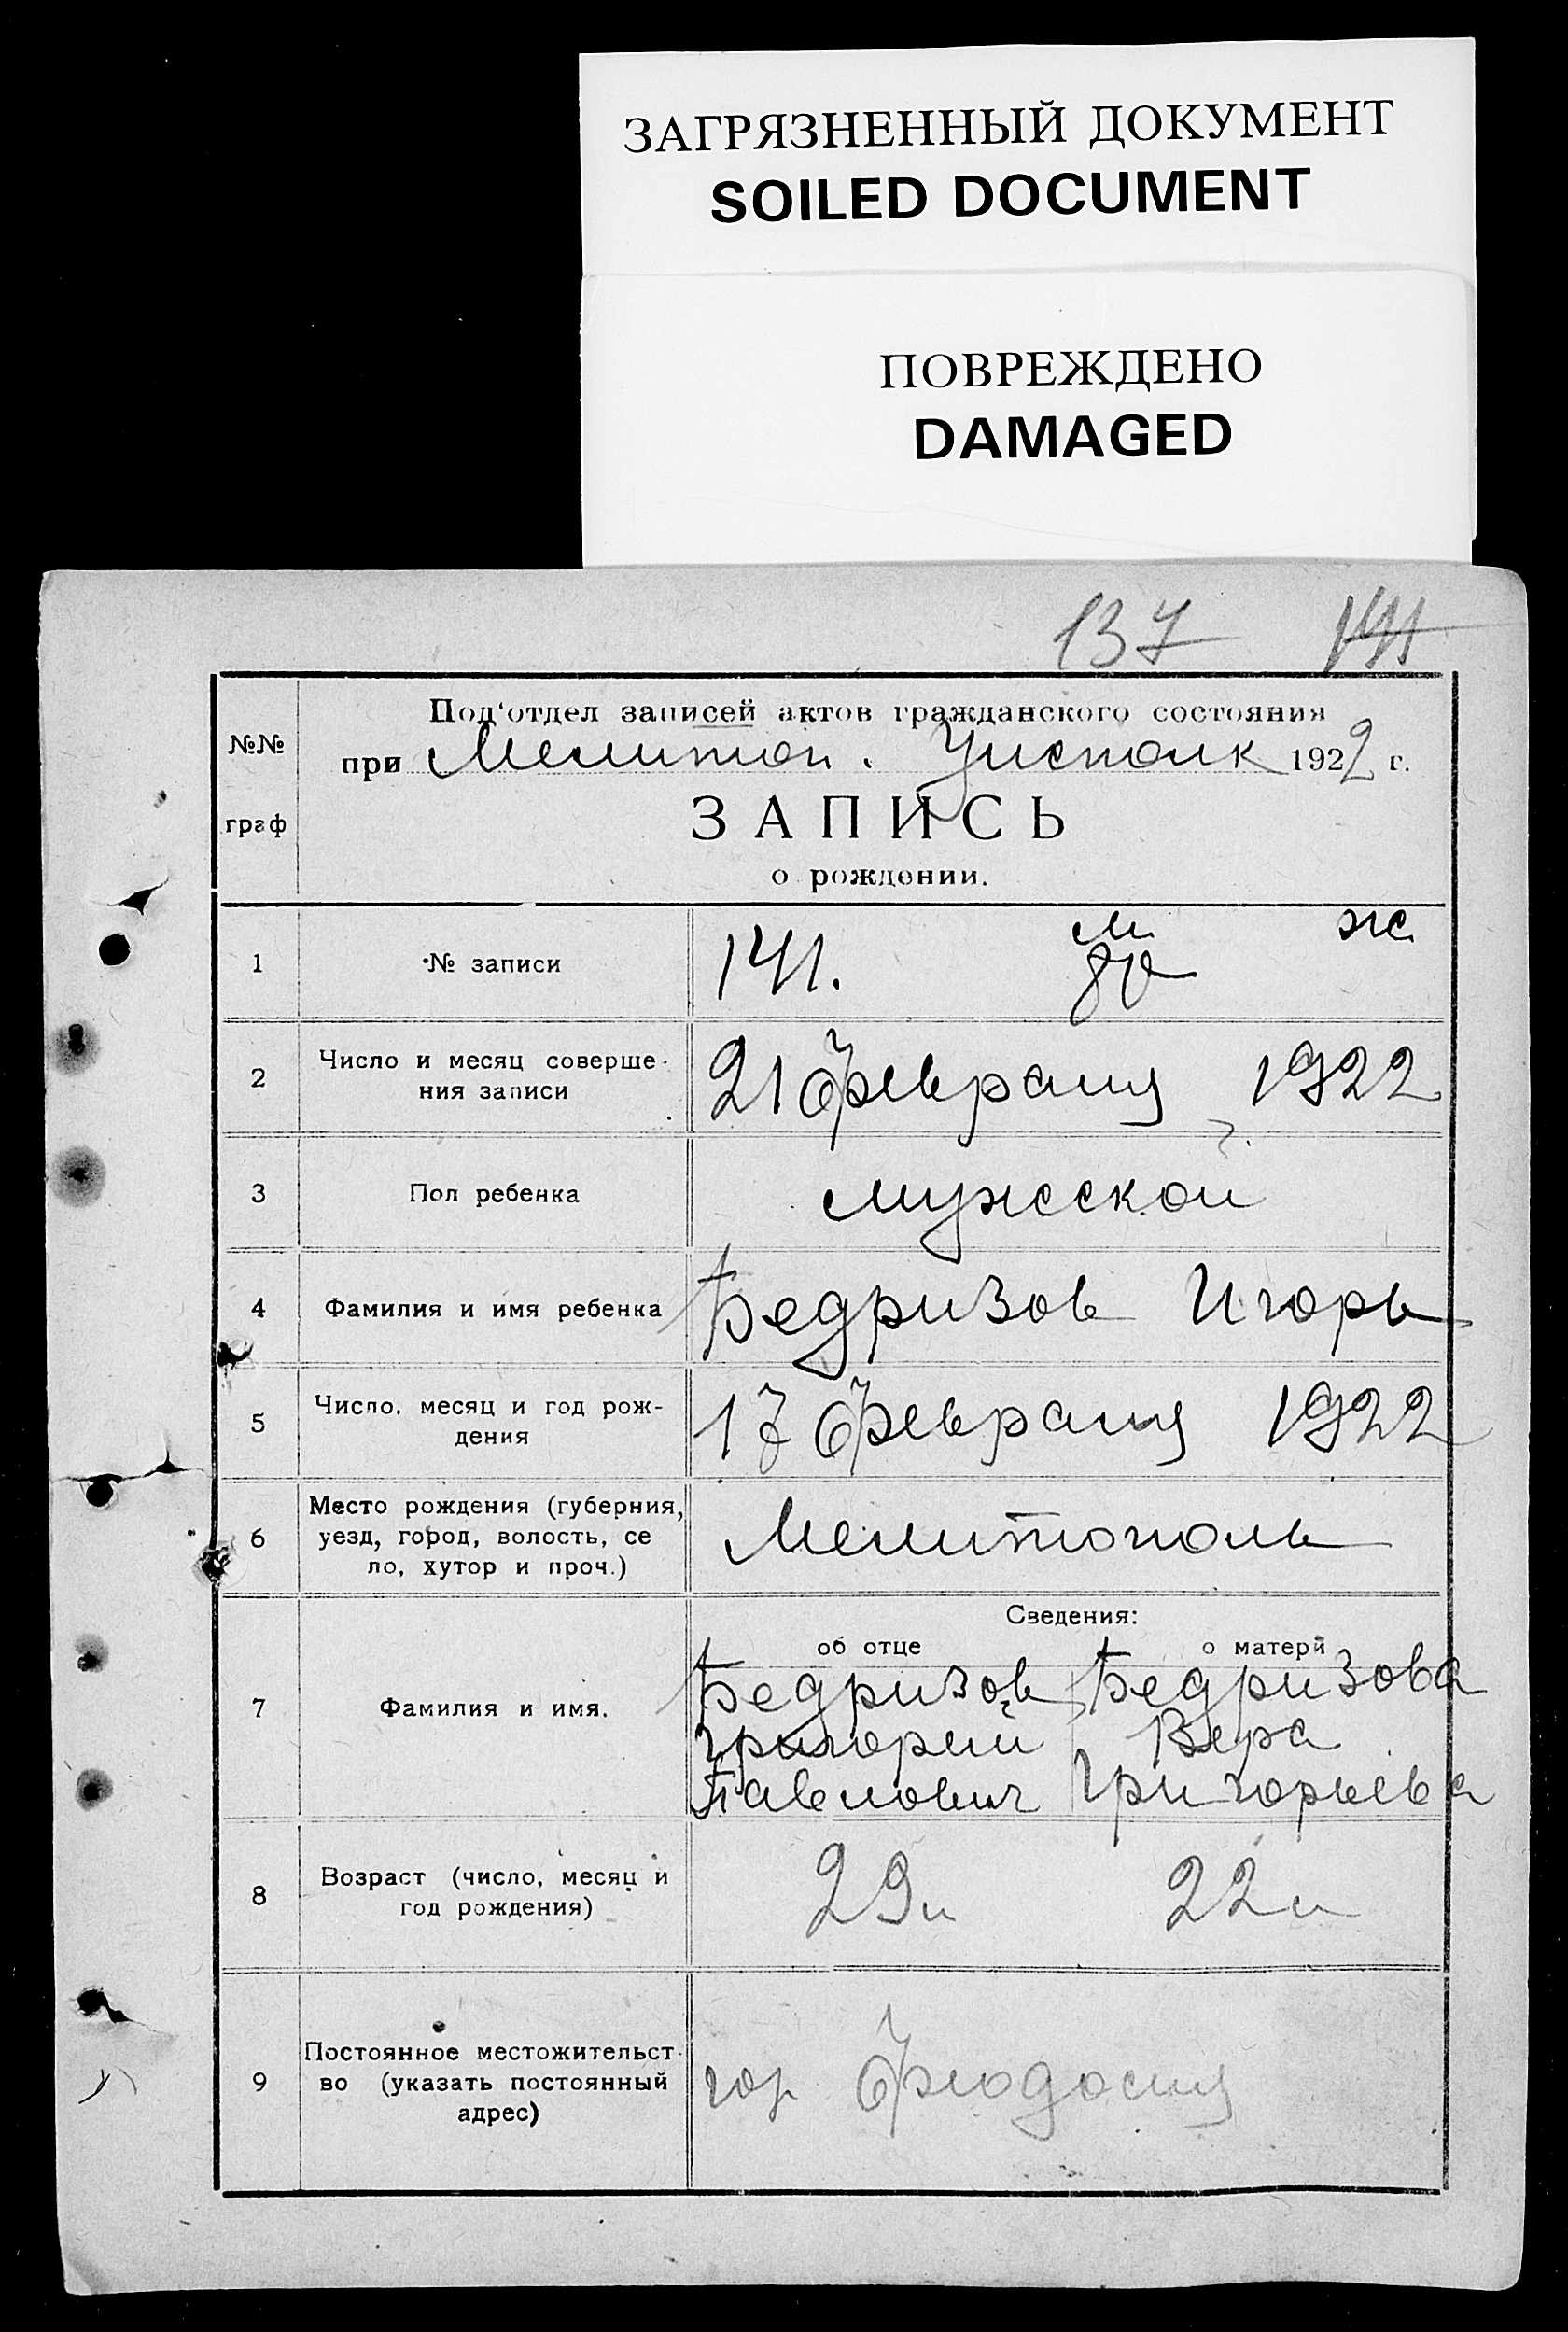 ЗАГРЯЗНЕННЫЙ ДОКУМЕНТ
SOILED DOCUMENT
ПОВРЕЖДЕНО
DAMAGED
137 141
№№ граф
Под'отдел записей актов гражданского состояния
при Мелитоп. Уисполк 1922 г.
ЗАПИСЬ
о рождении.
м ж
1 № записи 141. 80
2 Число и месяц соверше-
ния записи 21 февраля 1922
3 Пол ребенка мужской
4 Фамилия и имя ребенка Бедризов Игорь
5 Число, месяц и год рож-
дения 17 февраля 1922
6 Место рождения (губерния,
уезд, город, волость, се
ло, хутор и проч.) Мелитополь
Сведения:
об отце о матери
7 Фамилия и имя. Бедризов Бедризова
Григорий Вера
Павлович Григорьева
8 Возраст (число, месяц и
год рождения) 29 л 22 л
9 Постоянное местожительст
во (указать постоянный
адрес) гор Феодосия